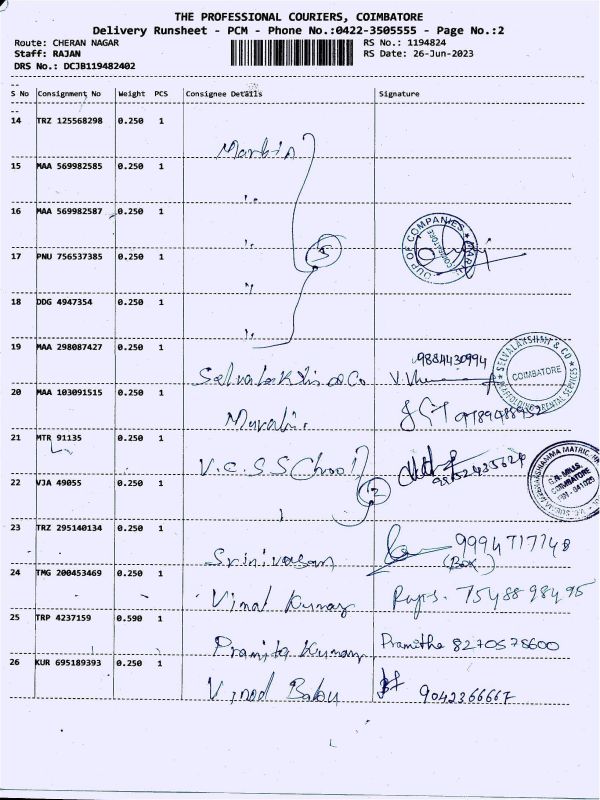 THE PROFESSIONAL COURIERS, COIMBATORE
Delivery Runsheet - PCM - Phone No.:0422-3505555 - Page No.:2
Route: CHERAN NAGAR
Staff: RAJAN
DRS No.: DCJB119482402
RS No.: 1194824
RS Date: 26-Jun-2023
S No Consignment No Weight PCS Consignee Details Signature
14 TRZ 125568298 0.250 1
15 MAA 569982585 0.250 1
16 MAA 569982587 0.250 1
5
17 PNU 756537385 0.250 1
18 DDG 4947354 0.250 1
19 MAA 298087427 0.250 1 9884430994
COIMBATORE
20 MAA 103091515 0.250 1
21 MTR 91135 0.250 1
22 VJA 49055 0.250 1
2
23 TRZ 295140134 0.250 1
Srinivasan 9994717748
(BOX)
24 TMG 200453469 0.250 1
Vimal Kumar 7548898495
25 TRP 4237159 0.590 1
Pramita Kumar Pramitha 8270578600
26 KUR 695189393 0.250 1
Vinod Babu 9042366667